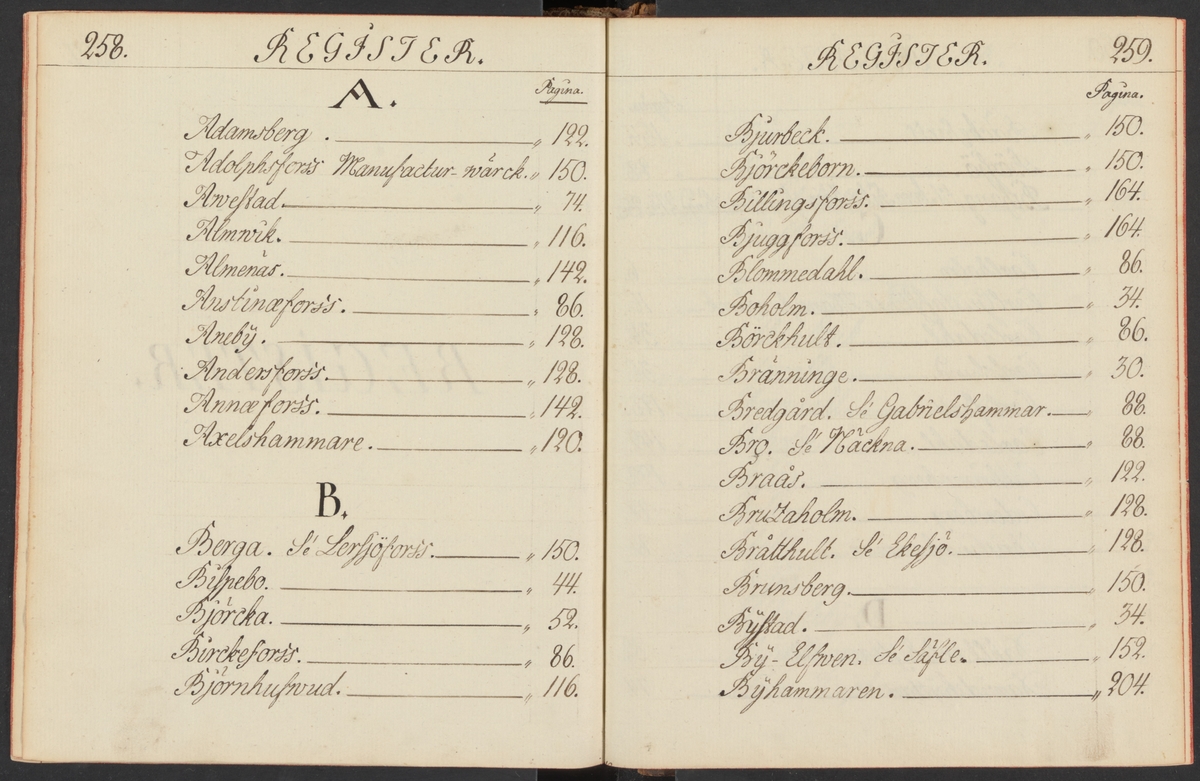 258. REGISTER.
A.
Pagina.
Adamsberg. „ 122.
Adolphsforss Manufactur-wärck. „ 150.
Awestad. „ 74.
Almwik. „ 116.
Almenäs. „ 142.
Anstinæforss. „ 86.
Anebÿ. „ 128.
Andersforss. „ 128.
Annæforss. „ 142.
Axelshammare. „ 120.
B.
Berga. Sé Lersjöforss. „ 150.
Bispebo. „ 44.
Björcka. „ 52.
Birckeforss. „ 86.
Björnhufwud. „ 116.
REGISTER. 259.
Pagina.
Bjurbeck. „ 150.
Björckeborn. „ 150.
Billingsforss. „ 164.
Bjuggforss. „ 164.
Blommedahl. „ 86.
Boholm. „ 34.
Börckhult. „ 86.
Bränninge. „ 30.
Bredgård. Sé Gabrielshammar. „ 88.
Bro. Sé Näckna. „ 88.
Braås. „ 122.
Bruzaholm. „ 128.
Bråtthult. Sé Ekesjö. „ 128.
Brunsberg. „ 150.
Bÿstad. „ 34.
Bÿ-Elfwen. Sé Säfle. „ 152.
Bÿhammaren. „ 204.